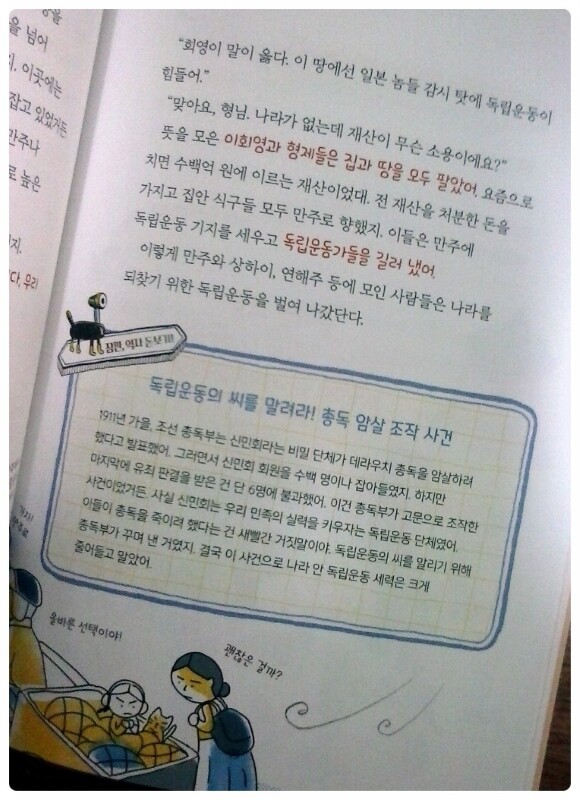 을 넘어
이곳에는
잡고 있었거든
만주나
로 높은
다, 우리
"회영이 말이 옳다. 이 땅에선 일본 놈들 감시 탓에 독립운동이
힘들어."
"맞아요, 형님. 나라가 없는데 재산이 무슨 소용이에요?"
뜻을 모은 이회영과 형제들은 집과 땅을 모두 팔았어. 요즘으로
치면 수백억 원에 이르는 재산이었대. 전 재산을 처분한 돈을
가지고 집안 식구들 모두 만주로 향했지. 이들은 만주에
독립운동 기지를 세우고 독립운동가들을 길러 냈어.
이렇게 만주와 상하이, 연해주 등에 모인 사람들은 나라를
되찾기 위한 독립운동을 벌여 나갔단다.
잠깐, 역사 돋보기!
독립운동의 씨를 말려라! 총독 암살 조작 사건
1911년 가을, 조선 총독부는 신민회라는 비밀 단체가 데라우치 총독을 암살하려
했다고 발표했어. 그러면서 신민회 회원을 수백 명이나 잡아들였지. 하지만
마지막에 유죄 판결을 받은 건 단 6명에 불과했어. 이건 총독부가 고문으로 조작한
사건이었거든. 사실 신민회는 우리 민족의 실력을 키우자는 독립운동 단체였어.
이들이 총독을 죽이려 했다는 건 새빨간 거짓말이야. 독립운동의 씨를 말리기 위해
총독부가 꾸며 낸 거였지. 결국 이 사건으로 나라 안 독립운동 세력은 크게
줄어들고 말았어.
가자!
올바른 선택이야!
괜찮은 걸까?